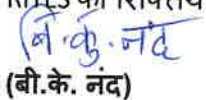 बी.के. नंद
(बी.के. नंद)